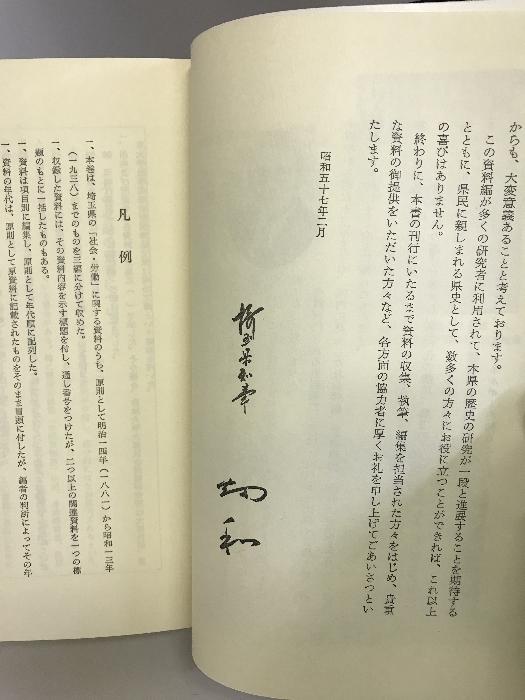 からも、大変意義あることと考えております。
この資料編が多くの研究者に利用されて、本県の歴史の研究が一段と進展することを期待する
とともに、県民に親しまれる県史として、数多くの方々にお役に立つことができれば、これ以上
の喜びはありません。
終わりに、本書の刊行にいたるまで資料の収集、執筆、編集を担当された方々をはじめ、貴重
な資料の御提供をいただいた方々など、各方面の協力者に厚くお礼を申し上げてごあいさつとい
たします。
昭和五十七年二月
埼玉県知事
畑和
凡例
一、本巻は、埼玉県の「社会・労働」に関する資料のうち、原則として明治一四年(一八八一)から昭和一三年
(一九三八)までのものを三編に分けて収めた。
一、収録した資料には、その資料内容を示す標題を付し、通し番号をつけたが、二つ以上の関連資料を一つの標
題のもとに一括したものもある。
一、資料は項目別に編集し、原則として年代順に配列した。
一、資料の年代は、原則として原資料に記載されたものをそのまま冒頭に付したが、編者の判断によってその年